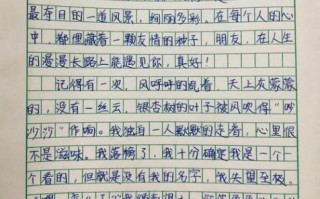 最夺目的一道风景,绚丽多彩。在每个人的心
中,都埋藏着一颗友情的种子,朋友,在人生
的漫漫长路上能遇见你,真好!
记得有一次,风呼呼的乱着,天上灰蒙蒙
的,没有一丝云,银杏树的叶子被风吹得“吵
沙沙”作响。我独自一人默默的走着,心里很
不是滋味。我落榜了,我十分确定我是一个一
个看的,但就是没有我的名字,我失望至极。